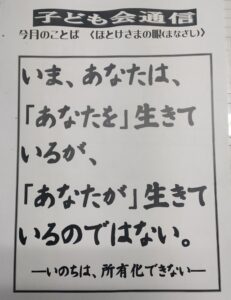 子ども会通信
今月のことば 〈ほとけさまの眼(まなざし)〉
いま、あなたは、
「あなたを」生きて
いるが、
「あなたが」生きて
いるのではない。
―いのちは、所有化できない―